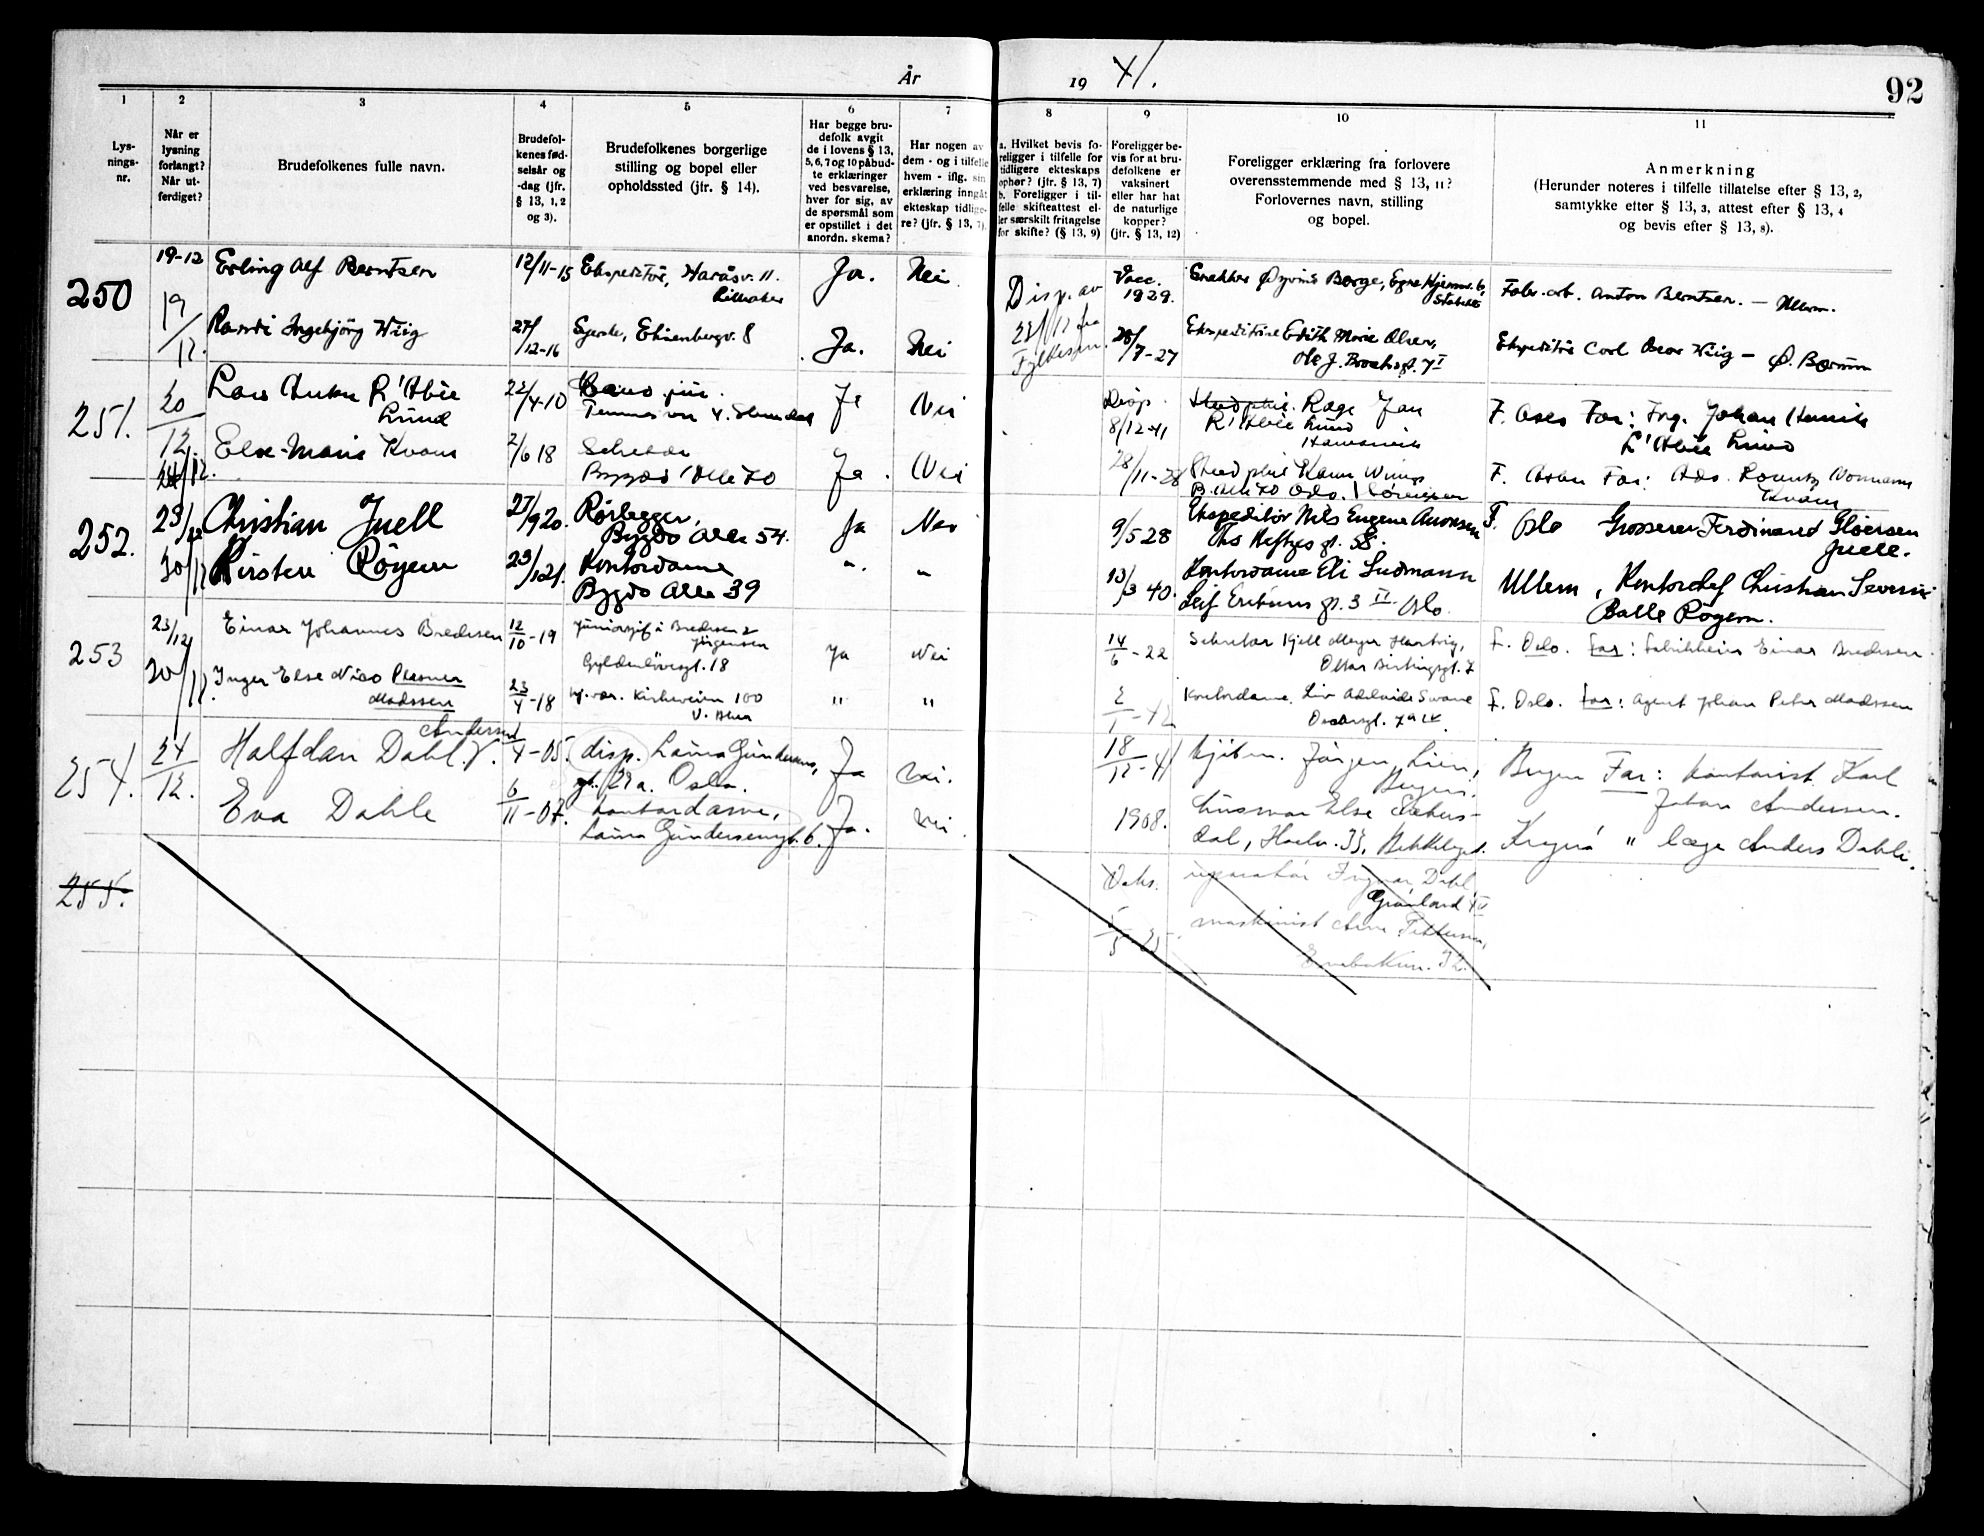 År
19 41.
92
1
2
3
4
5
6
7
8
9
10
11
Lys-
nings-
nr.
Når er
lysning
forlangt?
Når ut-
ferdiget?
Brudefolkenes fulle navn.
Brudefol-
kenes fød-
selsår og
-dag (jfr.
§ 13, 1, 2
og 3).
Brudefolkenes borgerlige
stilling og bopel eller
opholdssted (jfr. § 14).
Har begge bru-
defolk avgit
de i lovens § 13,
5, 6, 7 og 10 påbud-
te erklæringer
ved besvarelse,
hver for sig, av
de spørsmål som
er opstillet i det
anordn. skema?
Har nogen av
dem - og i tilfelle
hvem - iflg. sin
erklæring inngåt
ekteskap tidlige-
re? (jfr. § 13, 7).
a. Hvilket bevis fo-
religger i tilfelle for
tidligere ekteskaps
ophør? (jfr. § 13, 7)
b. Foreligger i til-
felle skifteattest el-
ler særskilt fritagelse
for skifte? (§ 13, 9)
Foreligger be-
vis for at bru-
defolkene er
vaksinert
eller har hat
de naturlige
kopper?
(jfr. § 13, 12)
Foreligger erklæring fra forlovere
overensstemmende med § 13, 11?
Forlovernes navn, stilling
og bopel.
Anmerkning
(Herunder noteres i tilfelle tillatelse efter § 13, 2,
samtykke efter § 13, 3, attest efter § 13, 4
og bevis efter § 13, 8).
250
19-12
19/12.
Erling Alf Berntsen
12/11-15
Ekspeditør, Haråsv. 11.
Ja.
Nei
Disp. av
Vacc.
1929.
Snekker Øyvind Borge,
Fabr. arb. Anton Berntsen. — Ullern.
Randi Ingebjörg Wiig
27/12-16
8
Ja.
Nei
28/7-27
Ekspeditrise Edith Marie Olsen,
Ekspeditör Carl Oscar Wiig — Ø. Bærum
251.
20/12.
Lars Anker L'Abée
Lund
22/4-10
Cand. jur.
Ja
Nei
Disp.
8/12-41
Stud. phil. Rage Jan
L'Abée Lund
F. Oslo Far: Ing. Johan Henrik
L'Abée Lund
Else-Marie Kvam
2/6 18
Bygdø Allé 70
Ja.
Nei
28/11-28
Stud. phil.
B. Allé 70 Oslo.
F. Far: Adv.
Kvam
252.
23/12
30/12
Christian Juell
27/9 20.
Rørlegger,
Bygdø Alle 54.
Ja
Nei
9/5 28
Ekspeditör Nils Eugene Aronsen
Ths. Heftyes gt. 58.
F. Oslo Grosserer Ferdinand Gløersen
Juell.
Kirsten Röyem
23/12 21.
Kontordame
Bygdö Alle 39
"
"
13/3 40.
Kontordame Eli Ludmann
Leif Eriksens gt. 3 II Oslo.
Ullern, Kontorchef Christian Severin
Balle Röyem.
253
23/12
30/12.
Einar Johannes Bredesen
12/10-19
Bredesen &
Jörgensen
Gyldenløvesgt. 18
Ja
Nei
14/6-22
Sekretær Kjell Meyer Hartvig,
F. Oslo. Far: Fabrikkeier Einar Bredesen.
Inger Else Nico Plesner
Madssen
23/4-18
Kirkeveien 100
"
"
2/1-42
Kontordame. Liv Adelaide Svane
F. Oslo. Far: Agent Johan Peter Madssen
254.
24/12.
Andersen
Halfdan Dahl. V.
4-05.
disp. Laura Gundersens
gt. Oslo.
Ja
Nei.
18/12-41
Jörgen Lien,
Bergen.
Bergen Far: Kontorist Karl
Johan Andersen.
Eva Dahle
6/11-07.
Kontordame,
Laura Gundersensgt. 6.
Ja.
Nei
1908.
husmor Else
dal,
Kragerö " læge Anders Dahle.
255.
Oslo.
Ingvar Dahl
Grönland
5/5-25.
maskinist Arne Pettersen,